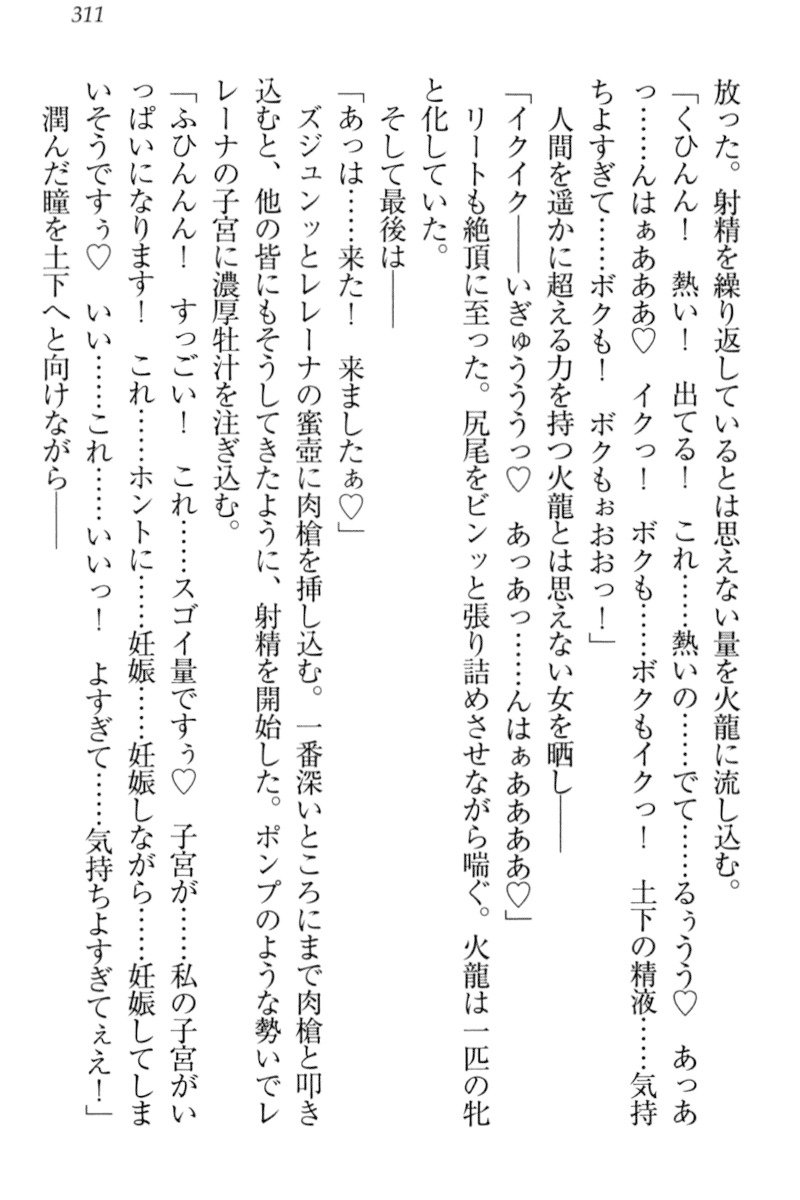 311
放った。射精を繰り返しているとは思えない量を火龍に流し込む。
「くひんん！　熱い！　出てる！　これ……熱いの……でて……るぅうう♡　あっあ
っ……んはぁあああ♡　イクっ！　ボクも……ボクもイクっ！　土下の精液……気持
ちよすぎて……ボクも！　ボクもぉおおっ！」
　人間を遥かに超える力を持つ火龍とは思えない女を晒し――
「イクイク――いぎゅうううっ♡　あっあっ……んはぁああああ♡」
　リートも絶頂に至った。尻尾をビンッと張り詰めさせながら喘ぐ。火龍は一匹の牝
と化していた。
　そして最後は――
「あっは……来た！　来ましたぁ♡」
　ズジュンッとレレーナの蜜壺に肉槍を挿し込む。一番深いところにまで肉槍と叩き
込むと、他の皆にもそうしてきたように、射精を開始した。ポンプのような勢いでレ
レーナの子宮に濃厚牡汁を注ぎ込む。
「ふひんんん！　すっごい！　これ……スゴイ量ですぅ♡　子宮が……私の子宮がい
っぱいになります！　これ……ホントに……妊娠……妊娠しながら……妊娠してしま
いそうですぅ♡　いい……これ……いいっ！　よすぎて……気持ちよすぎてぇえ！」
　潤んだ瞳を土下へと向けながら――